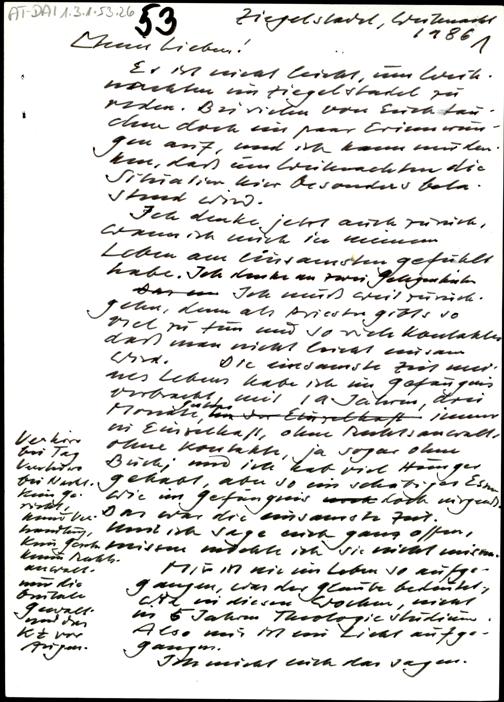 AT-DAI 1.3.1.53.26
53
Ziegelstadel, Weihnacht
1986 1
Meine Lieben!
Es ist nicht leicht, um Weih-
nachten im Ziegelstadel zu
reden. Bei vielen von Euch tau-
chen doch ein paar Erinnerun-
gen auf, und ich kann mir den-
ken, daß um Weihnachten die
Situation hier besonders bela-
stend wird.
Ich denke jetzt auch zurück,
wann ich mich in meinem
Leben am einsamsten gefühlt
habe. Ich denke an zwei Gelegenheiten
Ich muß weit zurück-
gehn, denn als Priester gibts so
viel zu tun und so viele Kontakte,
daß man nicht leicht einsam
wird. Die einsamste Zeit mei-
nes Lebens habe ich im Gefängnis
verbracht, mit 19 Jahren, drei
Monate in der Einzelhaft immer
in Einzelhaft, ohne Rechtsanwalt,
ohne Kontakte, ja sogar ohne
Buch; und ich hab viel Hunger
gehabt, aber so ein schäbiges Essen
wie im Gefängnis doch nirgends.
Das war die einsamste Zeit.
Und ich sage euch ganz offen,
missen möchte ich sie nicht missen.
Mir ist nie im Leben so aufge-
gangen, was der Glaube bedeutet,
wie in diesen Wochen, nicht
in 5 Jahren Theologiestudium.
Also mir ist ein Licht aufge-
gangen.
Ich möcht euch das sagen.
Verhöre
bei Tag
Verhöre
bei Nacht.
Kein Ge-
richt,
keine Ver-
handlung,
kein Rechts-
anwalt.
nur die
brutale
Gewalt
und das
KZ vor
Augen.